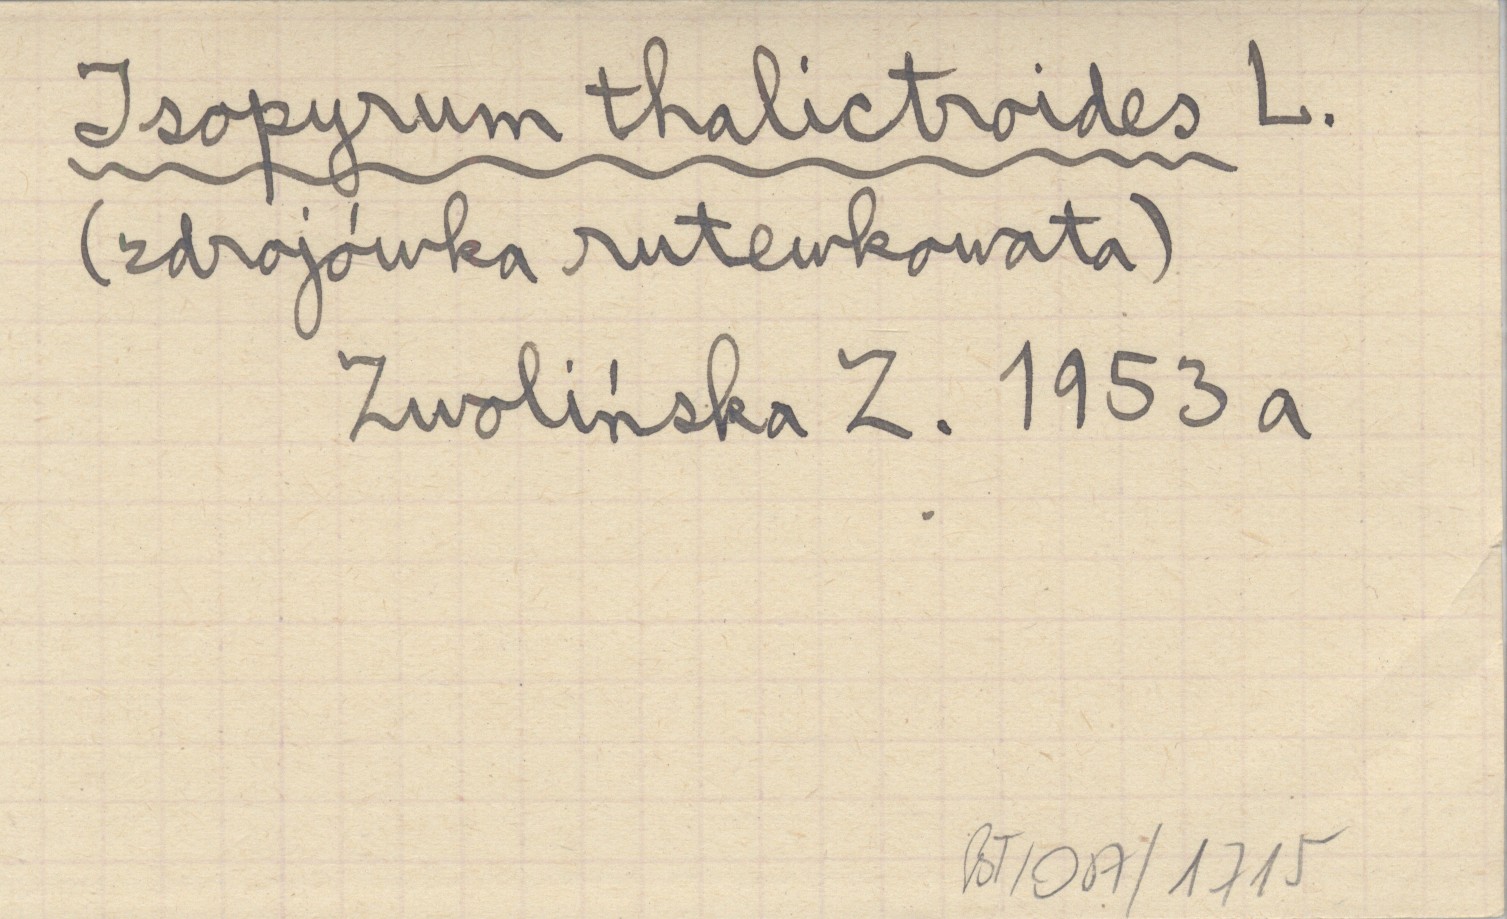 Isopyrum thalictroides L.
(zdrojówka rutewkowata)
Zwolińska Z. 1953 a
/ 1715